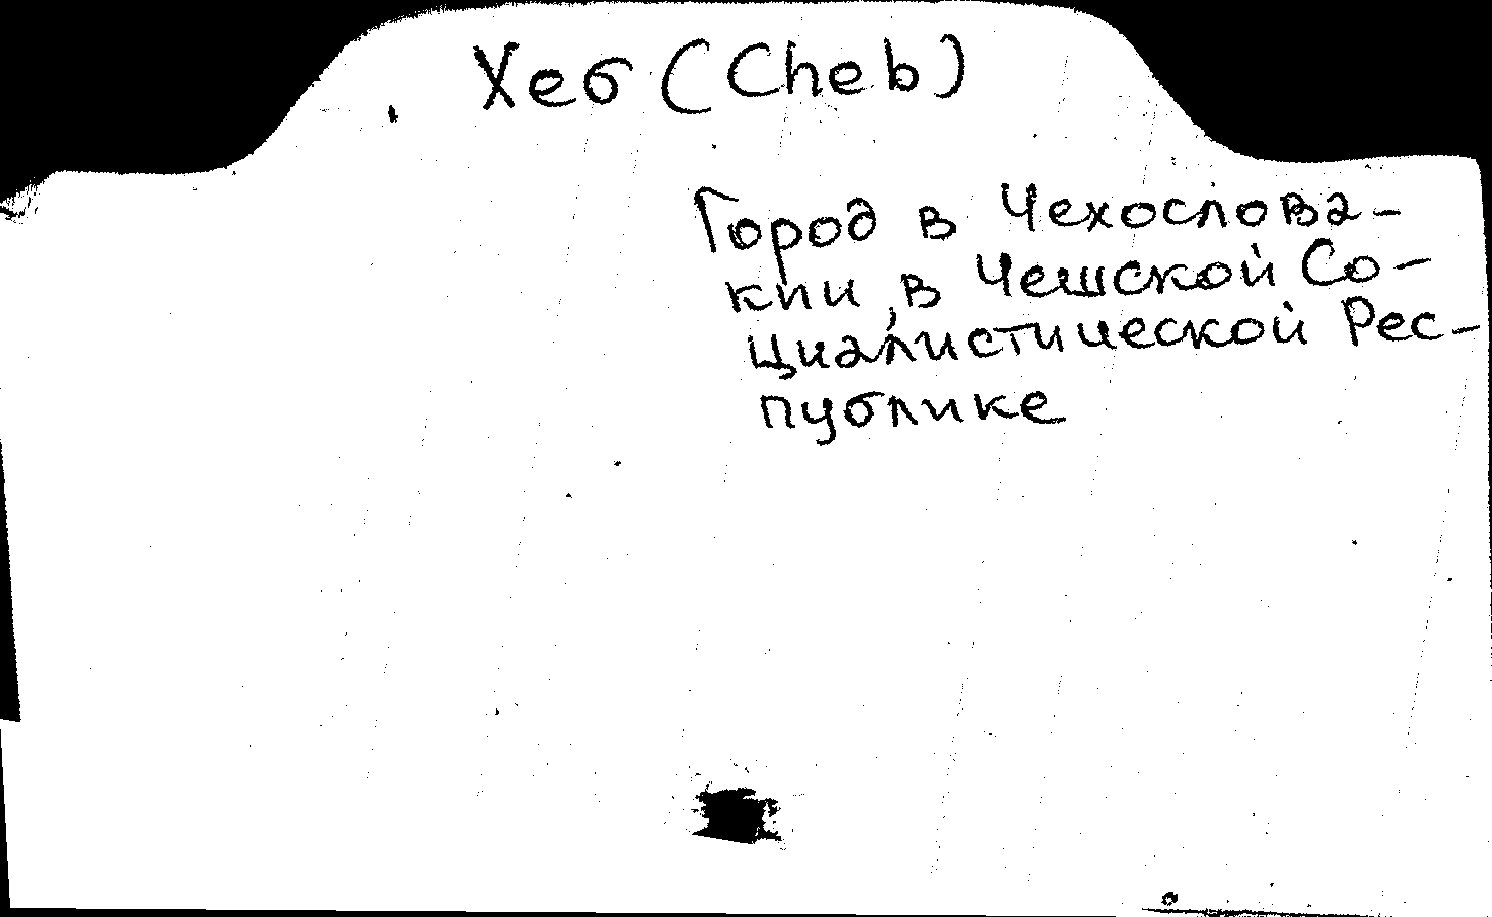 Хеб (Cheb)
Город в Чехослова-
кии, в Чешской Со-
циалистической Рес-
публике